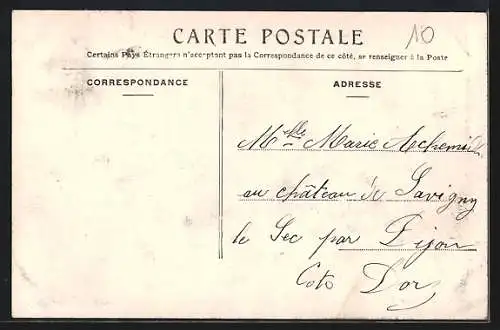 CARTE POSTALE
10
Certains Pays Étrangers n'acceptant pas la Correspondance de ce côté, se renseigner à la Poste
CORRESPONDANCE
ADRESSE
Melle Marie
au château de Savigny
le Sec par Dijon
Cote Dor